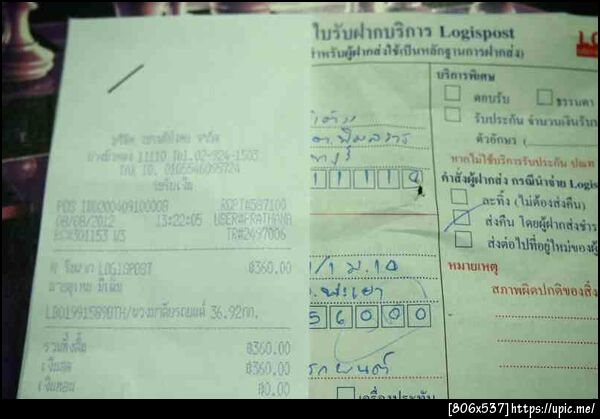 บริษัท ไปรษณีย์ไทย จำกัด
บางบัวทอง 11110 Tel.02-924-1503
TAX ID. 0105546095724
ใบรับเงิน
POS ID020040910000B RCPT#587100
08/08/2012 13:22:05 USER#PRATHANA
EC#301153 WS TR#2497006
N รับฝาก LOGISPOST ฿360.00
LB019915890TH/พวงมาลัยรถยนต์ 36.92กก.
รวมทั้งสิ้น ฿360.00
เงินสด ฿360.00
เงินทอน ฿0.00
ใบรับฝากบริการ Logispost
สำหรับผู้ฝากส่งใช้เป็นหลักฐานการฝากส่ง)
11110
/1 ม.10
จ.พะเยา
56000
รถยนต์
เครื่องประทับ
บริการพิเศษ
ตอบรับ
ธรรมดา
รับประกัน จำนวนเงินรับป
ตัวอักษร (
หากไม่ใช้บริการรับประกัน ปณท
คำสั่งผู้ฝากส่ง กรณีนำจ่าย Logis
ละทิ้ง (ไม่ต้องส่งคืน)
ส่งคืน โดยผู้ฝากส่งชำร
ส่งต่อไปที่อยู่ใหม่ของผู้
หมายเหตุ
สภาพผิดปกติของสิ่ง
[806x537]https://upic.me/